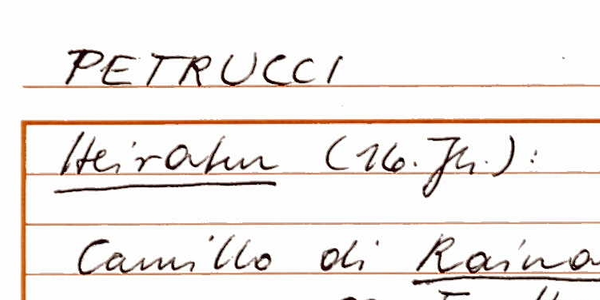 PETRUCCI
Heiraten (16. Jh.):
Camillo di